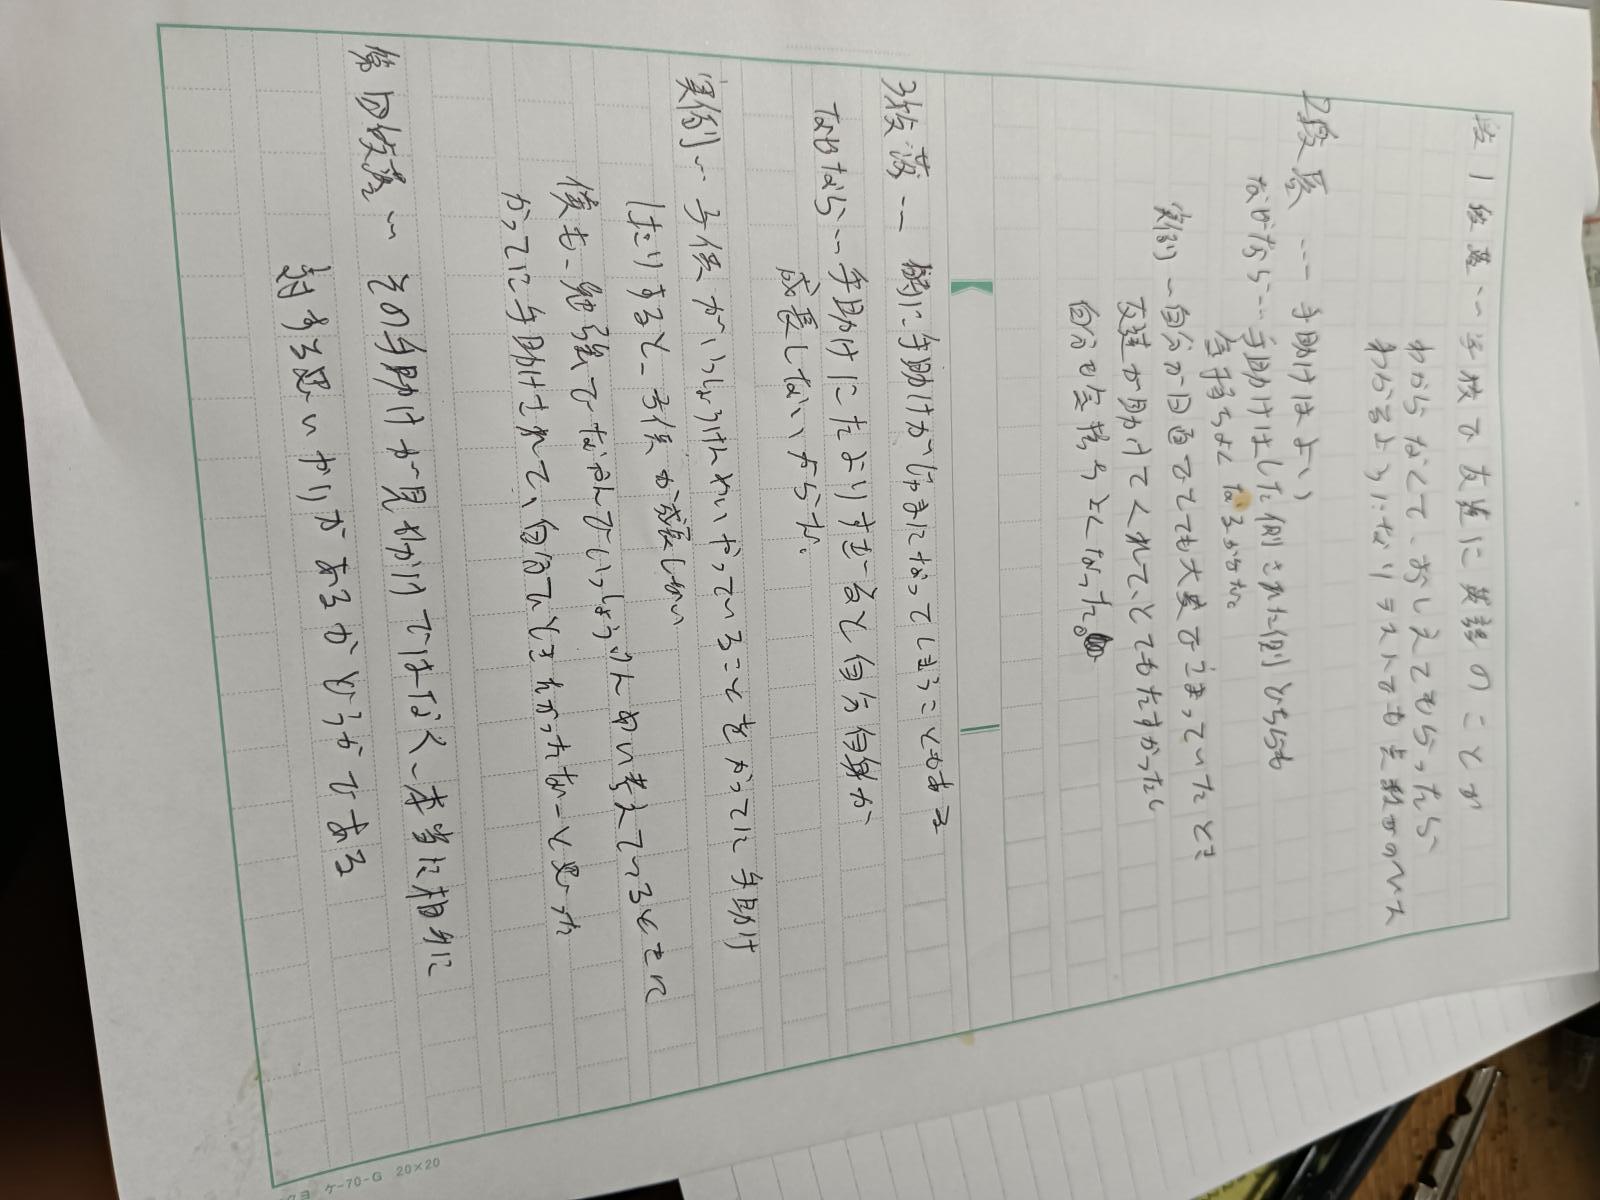 第1段落…学校で友達に英語のことが
わからなくて、おしえてもらったら
わかるようになりテストでも点数が
2段落 … 手助けはよい
なぜなら…手助けはした側された側どちらも
気持ちよくなるからだ。
実例…自分が日直でとても大変でこまっていたとき
友達が助けてくれて、とてもたすかったし
自分も気持ちよくなった。
3段落… 逆に手助けがじゃまになってしまうこともある
なぜなら…手助けにたよりすぎると自分自身が
成長しないからだ。
実例…子供がいっしょうけんめいやっていることをかってに手助け
したりすると、子供が成長しない
僕も、勉強でなやんでいっしょうけんめい考えているときに
かってに手助けされて、自分でときたかったなーと思った
第四段落… その手助けが見せかけではなく、本当に相手に
対する思いやりがあるかどうかである
ケ-70-G 20×20